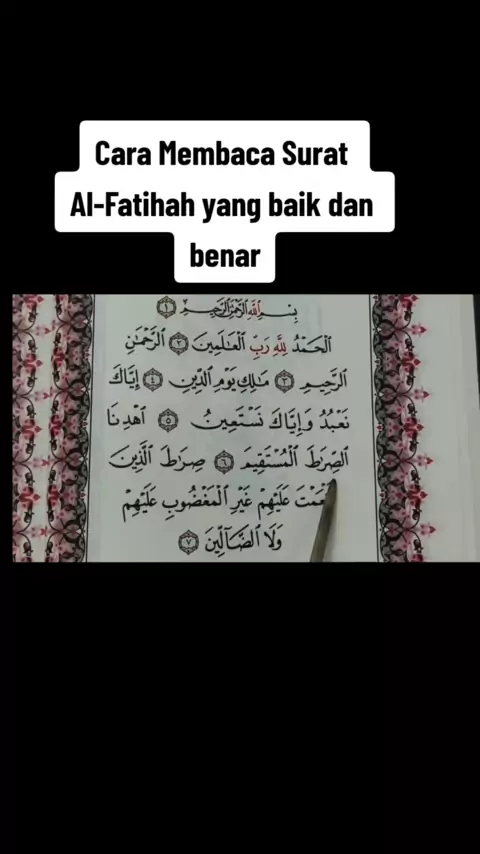 Cara Membaca Surat
Al-Fatihah yang baik dan
benar
بِسْمِ ٱللَّهِ ٱلرَّحْمَٰنِ ٱلرَّحِيمِ ١
ٱلْحَمْدُ لِلَّهِ رَبِّ ٱلْعَٰلَمِينَ ٢ ٱلرَّحْمَٰنِ
ٱلرَّحِيمِ ٣ مَٰلِكِ يَوْمِ ٱلدِّينِ ٤ إِيَّاكَ
نَعْبُدُ وَإِيَّاكَ نَسْتَعِينُ ٥ ٱهْدِنَا
ٱلصِّرَٰطَ ٱلْمُسْتَقِيمَ ٦ صِرَٰطَ ٱلَّذِينَ
عَلَيْهِمْ غَيْرِ ٱلْمَغْضُوبِ عَلَيْهِمْ
وَلَا ٱلضَّآلِّينَ ٧